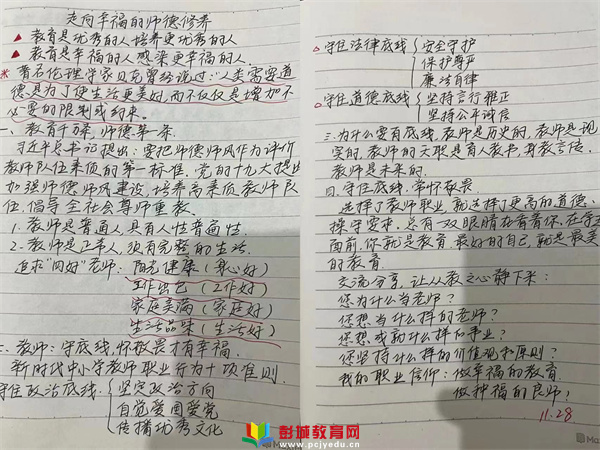 走向幸福的师德修养
▲教育是优秀的人培养更优秀的人
▲教育是幸福的人感染更幸福的人.
※著名伦理学家贝克曾经说过:"人类需要道
德,是为了使生活更美好,而不仅仅是增加不
必要的限制或约束.
一、教育千万条,师德第一条.
习近平总书记提出:要把师德师风作为评价
教师队伍素质的第一标准,党的十九大提出
加强师德师风建设,培养高素质教师队
伍,倡导全社会尊师重教.
1.教师是普通人,具有人性普遍性
2.教师是正常人,须有完整的生活.
追求"四好"老师:阳光健康(身心好)
工作出色(工作好)
家庭美满(家庭好)
生活品味(生活好)
二、教师:守底线,怀敬畏才有幸福.
新时代中小学教师职业行为十项准则.
守住政治底线{坚定政治方向
自觉爱国爱党
传播优秀文化
△守住法律底线{安全守护
保护尊严
廉洁自律
△守住道德底线{坚持言行雅正
坚持公平诚信
三.为什么要有底线,教师是历史的,教师是现
实的,教师的天职是育人教书,身教言传.
教师是未来的.
四.守住底线,常怀敬畏.
选择了教师职业,就选择了更高的道德、
操守要求,总有一双眼睛在看着你,在学生
面前,你就是教育,最好的自己,就是最美
的教育.
交流分享,让从教之心静下来:
您为什么当老师?
您想当什么样的老师?
您想成就什么样的事业?
您坚持什么样的价值观和原则?
我的职业信仰:做幸福的教育
做种福的良师!
11.28
彭城教育网
www.pcjyedu.cn